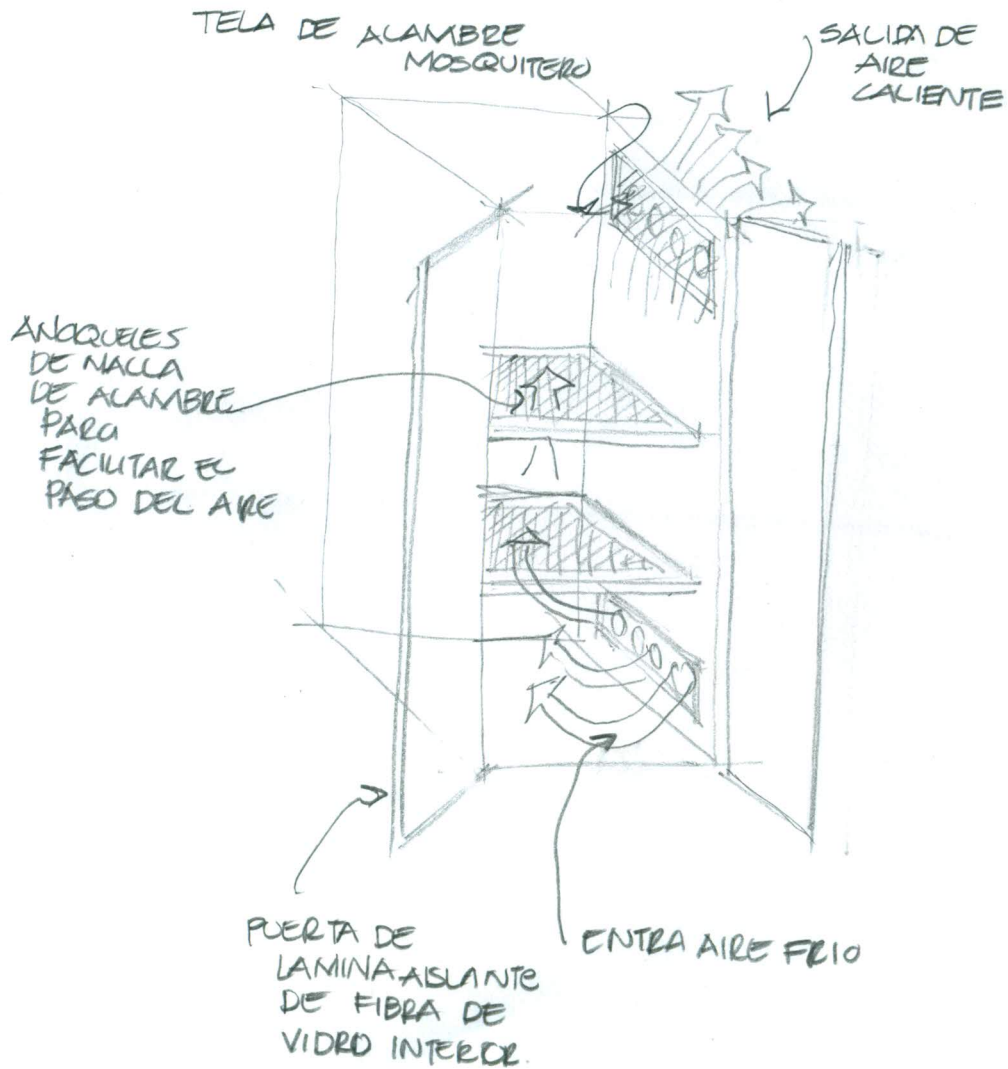 TELA DE ALAMBRE
MOSQUITERO
SALIDA DE
AIRE
CALIENTE
ANAQUELES
DE MALLA
DE ALAMBRE
PARA
FACILITAR EL
PASO DEL AIRE
PUERTA DE
LAMINA AISLANTE
DE FIBRA DE
VIDRO INTERIOR.
ENTRA AIRE FRIO